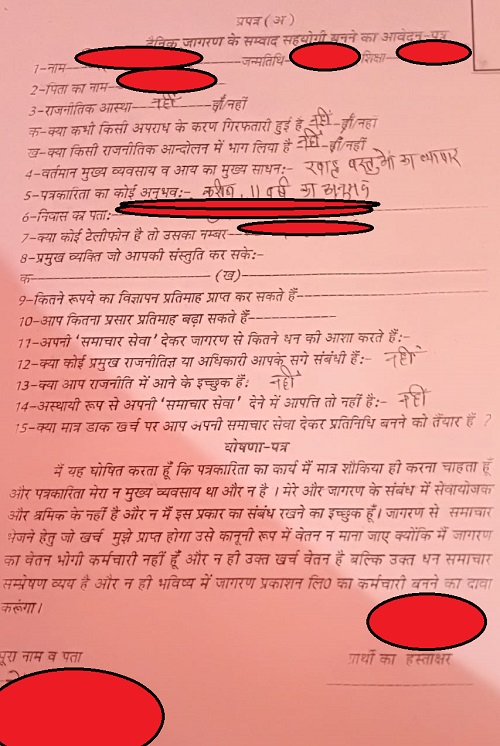 प्रपत्र (अ)
दैनिक जागरण के सम्वाद सहयोगी बनने का आवेदन-पत्र
1-नाम- जन्मतिथि- शिक्षा-
2-पिता का नाम-
3-राजनीतिक आस्था- नहीं -हाँ/नहीं
क-क्या कभी किसी अपराध के करण गिरफतारी हुई है नहीं -हाँ/नहीं
ख-क्या किसी राजनीतिक आन्दोलन में भाग लिया है नहीं -हाँ/नहीं
4-वर्तमान मुख्य व्यवसाय व आय का मुख्य साधन:- खाद्य वस्तुओं का व्यापार
5-पत्रकारिता का कोई अनुभव:- करीब 11 वर्ष का अनुभव
6-निवास का पता:-
7-क्या कोई टेलीफोन है तो उसका नम्बर-
8-प्रमुख व्यक्ति जो आपकी संस्तुति कर सके:-
क- (ख)-
9-कितने रूपये का विज्ञापन प्रतिमाह प्राप्त कर सकते हैं-
10-आप कितना प्रसार प्रतिमाह बढ़ा सकते हैं-
11-अपनी 'समाचार सेवा' देकर जागरण से कितने धन की आशा करते हैं:-
12-क्या कोई प्रमुख राजनीतिज्ञ या अधिकारी आपके सगे संबंधी हैं:- नहीं
13-क्या आप राजनीति में आने के इच्छुक हैं: नहीं
14-अस्थायी रूप से अपनी 'समाचार सेवा' देने में आपत्ति तो नहीं है:- नहीं
15-क्या मात्र डाक खर्च पर आप अपनी समाचार सेवा देकर प्रतिनिधि बनने को तैयार हैं ?
घोषणा-पत्र
मैं यह घोषित करता हूँ कि पत्रकारिता का कार्य मैं मात्र शौकिया ही करना चाहता हूँ
और पत्रकारिता मेरा न मुख्य व्यवसाय था और न है । मेरे और जागरण के संबंध में सेवायोजक
और श्रमिक के नहीं है और न मैं इस प्रकार का संबंध रखने का इच्छुक हूँ। जागरण से समाचार
भेजने हेतु जो खर्च मुझे प्राप्त होगा उसे कानूनी रूप में वेतन न माना जाए क्योंकि मैं जागरण
का वेतन भोगी कर्मचारी नहीं हूँ और न ही उक्त खर्च वेतन है बल्कि उक्त धन समाचार
सम्प्रेषण व्यय है और न ही भविष्य में जागरण प्रकाशन लि0 का कर्मचारी बनने का दावा
करूंगा।
पूरा नाम व पता प्रार्थी का हस्ताक्षर